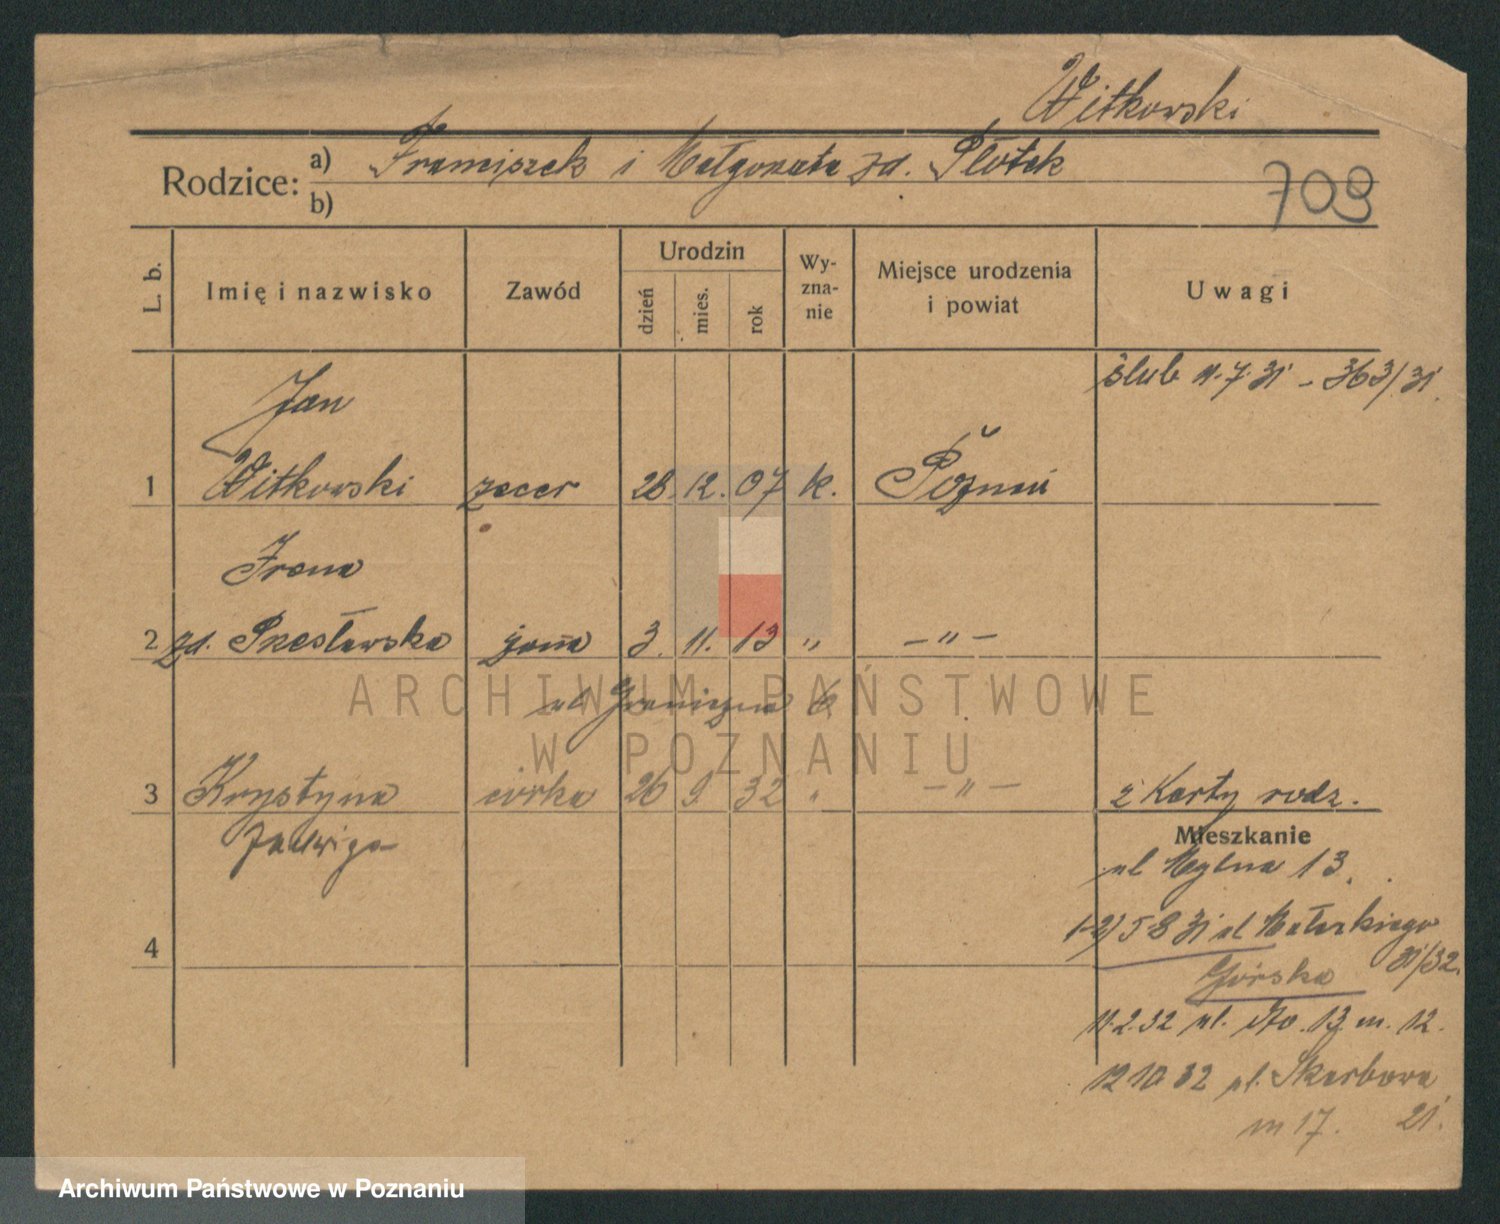 Witkowski
Rodzice: a) Franciszek i Małgorzata zd. Płotek
b)
709
L. b.
Imię i nazwisko
Zawód
Urodzin
dzień
mies.
rok
Wy-
zna-
nie
Miejsce urodzenia
i powiat
Uwagi
ślub 11.7.31 - 363/31.
Jan
1 Witkowski zecer 28. 12. 07 k. Poznań
Irena
2 zd. Przesławska żona 3. 11. 13 " - " -
ul Graniczna 6
ARCHIWUM PAŃSTWOWE
W POZNANIU
3 Krystyna córka 26 9. 32 " - " -
z Karty rodz.
Jadwiga
Mieszkanie
ul Mylna 13.
1-2) 5-8 31 ul Małeckiego
31/32.
Górska
4
11.2.32 ul. 13 m. 12.
12 10 32 ul. Skarbowa
21.
m 17.
Archiwum Państwowe w Poznaniu